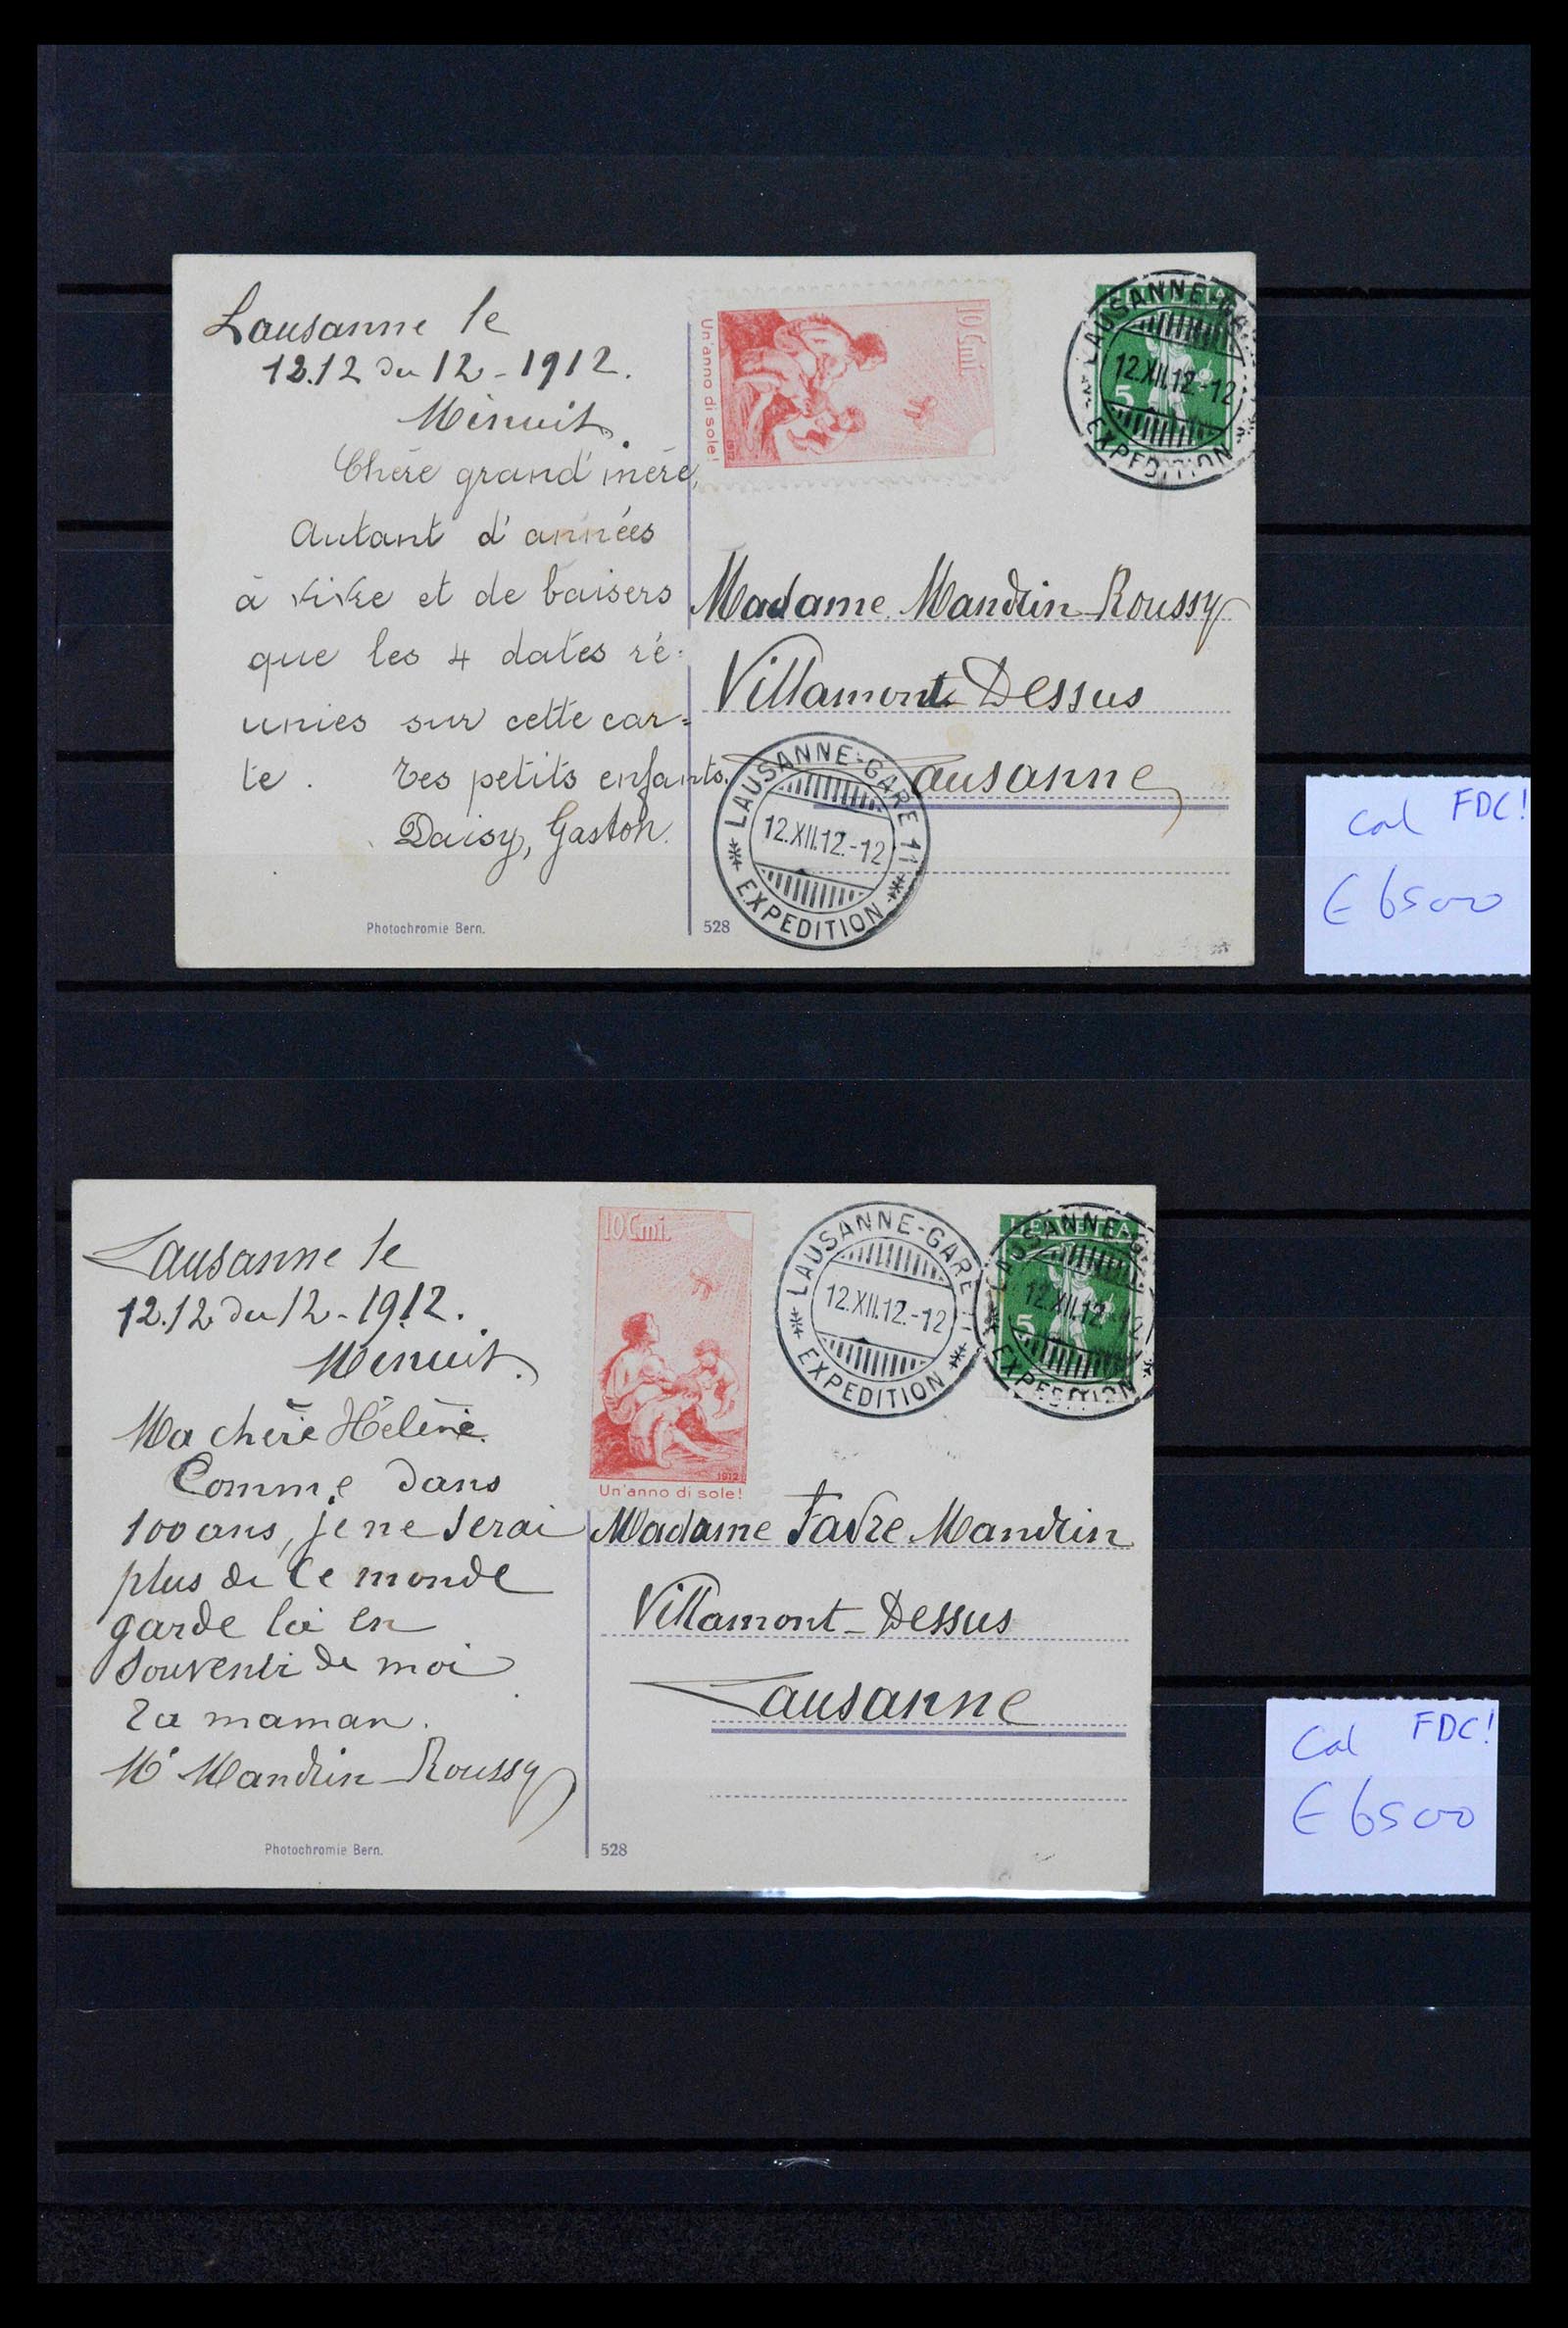 Lausanne le
12.12 du 12 - 1912.
Minuit.
Chère grand'mère,
Autant d'années
à vivre et de baisers
que les 4 dates ré=
unies sur cette car=
te. Tes petits enfants.
Daisy, Gaston.
Photochromie Bern.
10 Cmi.
1912
Un'anno di sole!
HELVETIA
5
LAUSANNE-GA
12.XII.12.-12
EXPEDITION
Madame Mandrin-Roussy
Villamont-Dessus
Lausanne
LAUSANNE-GARE 11
12.XII.12.-12
EXPEDITION
528
Cat FDC!
€ 6500
Lausanne le
12.12 du 12 - 1912.
Minuit.
Ma chère Hélène.
Comme dans
100 ans, je ne serai
plus de ce monde
garde la en
souvenir de moi
Ta maman.
Mandrin-Roussy
Photochromie Bern.
10 Cmi.
1912
Un'anno di sole!
LAUSANNE-GARE 11
12.XII.12.-12
EXPEDITION
HELVETIA
5
LAUSANNE-G
12.XII.12.-12
EXPEDITION
Madame Favre-Mandrin
Villamont-Dessus
Lausanne
528
Cat FDC!
€ 6500